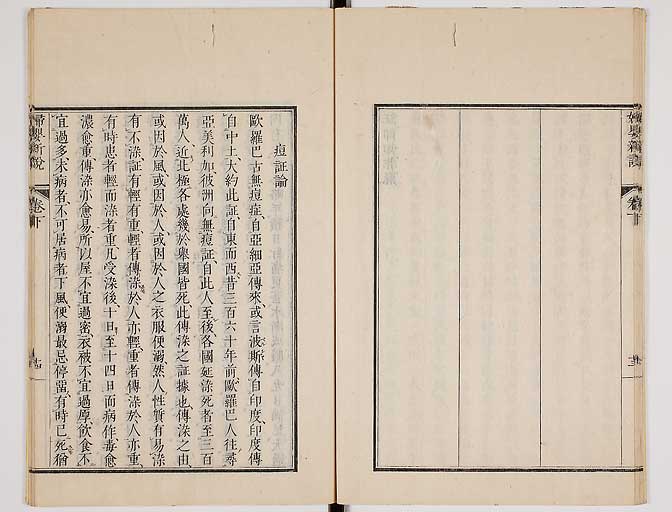 婦嬰新說
卷下
痘証論
歐羅巴古無痘症自亞細亞傳來或言波斯傳自印度印度傳
自中土大約此証自東而西昔三百六十年前歐羅巴人往尋
亞美利加彼洲向無痘証自此人至後各國延染死者至三百
萬人近北極各處幾於舉國皆死此傳染之証據也傳染之由
或因於風或因於人或因於人之衣服便溺然人性質有易染
有不染証有輕有重輕者傳染於人亦輕重者傳染於人亦重
有時患者輕而染者重凡受染後十日至十四日而病作毒愈
濃愈重傳染亦愈易所以屋不宜過密衣被不宜過厚飲食不
宜過多未病者不可居病者下風便溺最忌停留有時已死猶
婦嬰新說
卷下